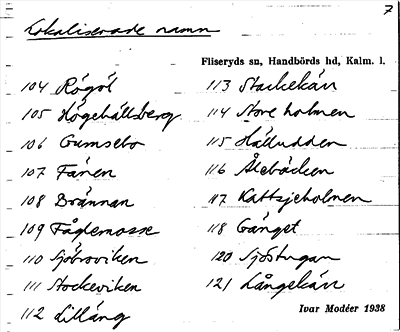 7
Lokaliserade namn
Fliseryds sn, Handbörds hd, Kalm. l.
104 Rögöl
105 Högehällsberg
106 Gumsebo
107 Fänen
108 Brännan
109 Fåglemosse
110 Sjöboviken
111 Stockeviken
112 Lilläng
113 Starkekärr
114 Store holmen
115 Hälludden
116 Ålebäcken
117 Kattsjeholmen
118 Gänget
120 Sjöstugan
121 Långekärr
Ivar Modéer 1938